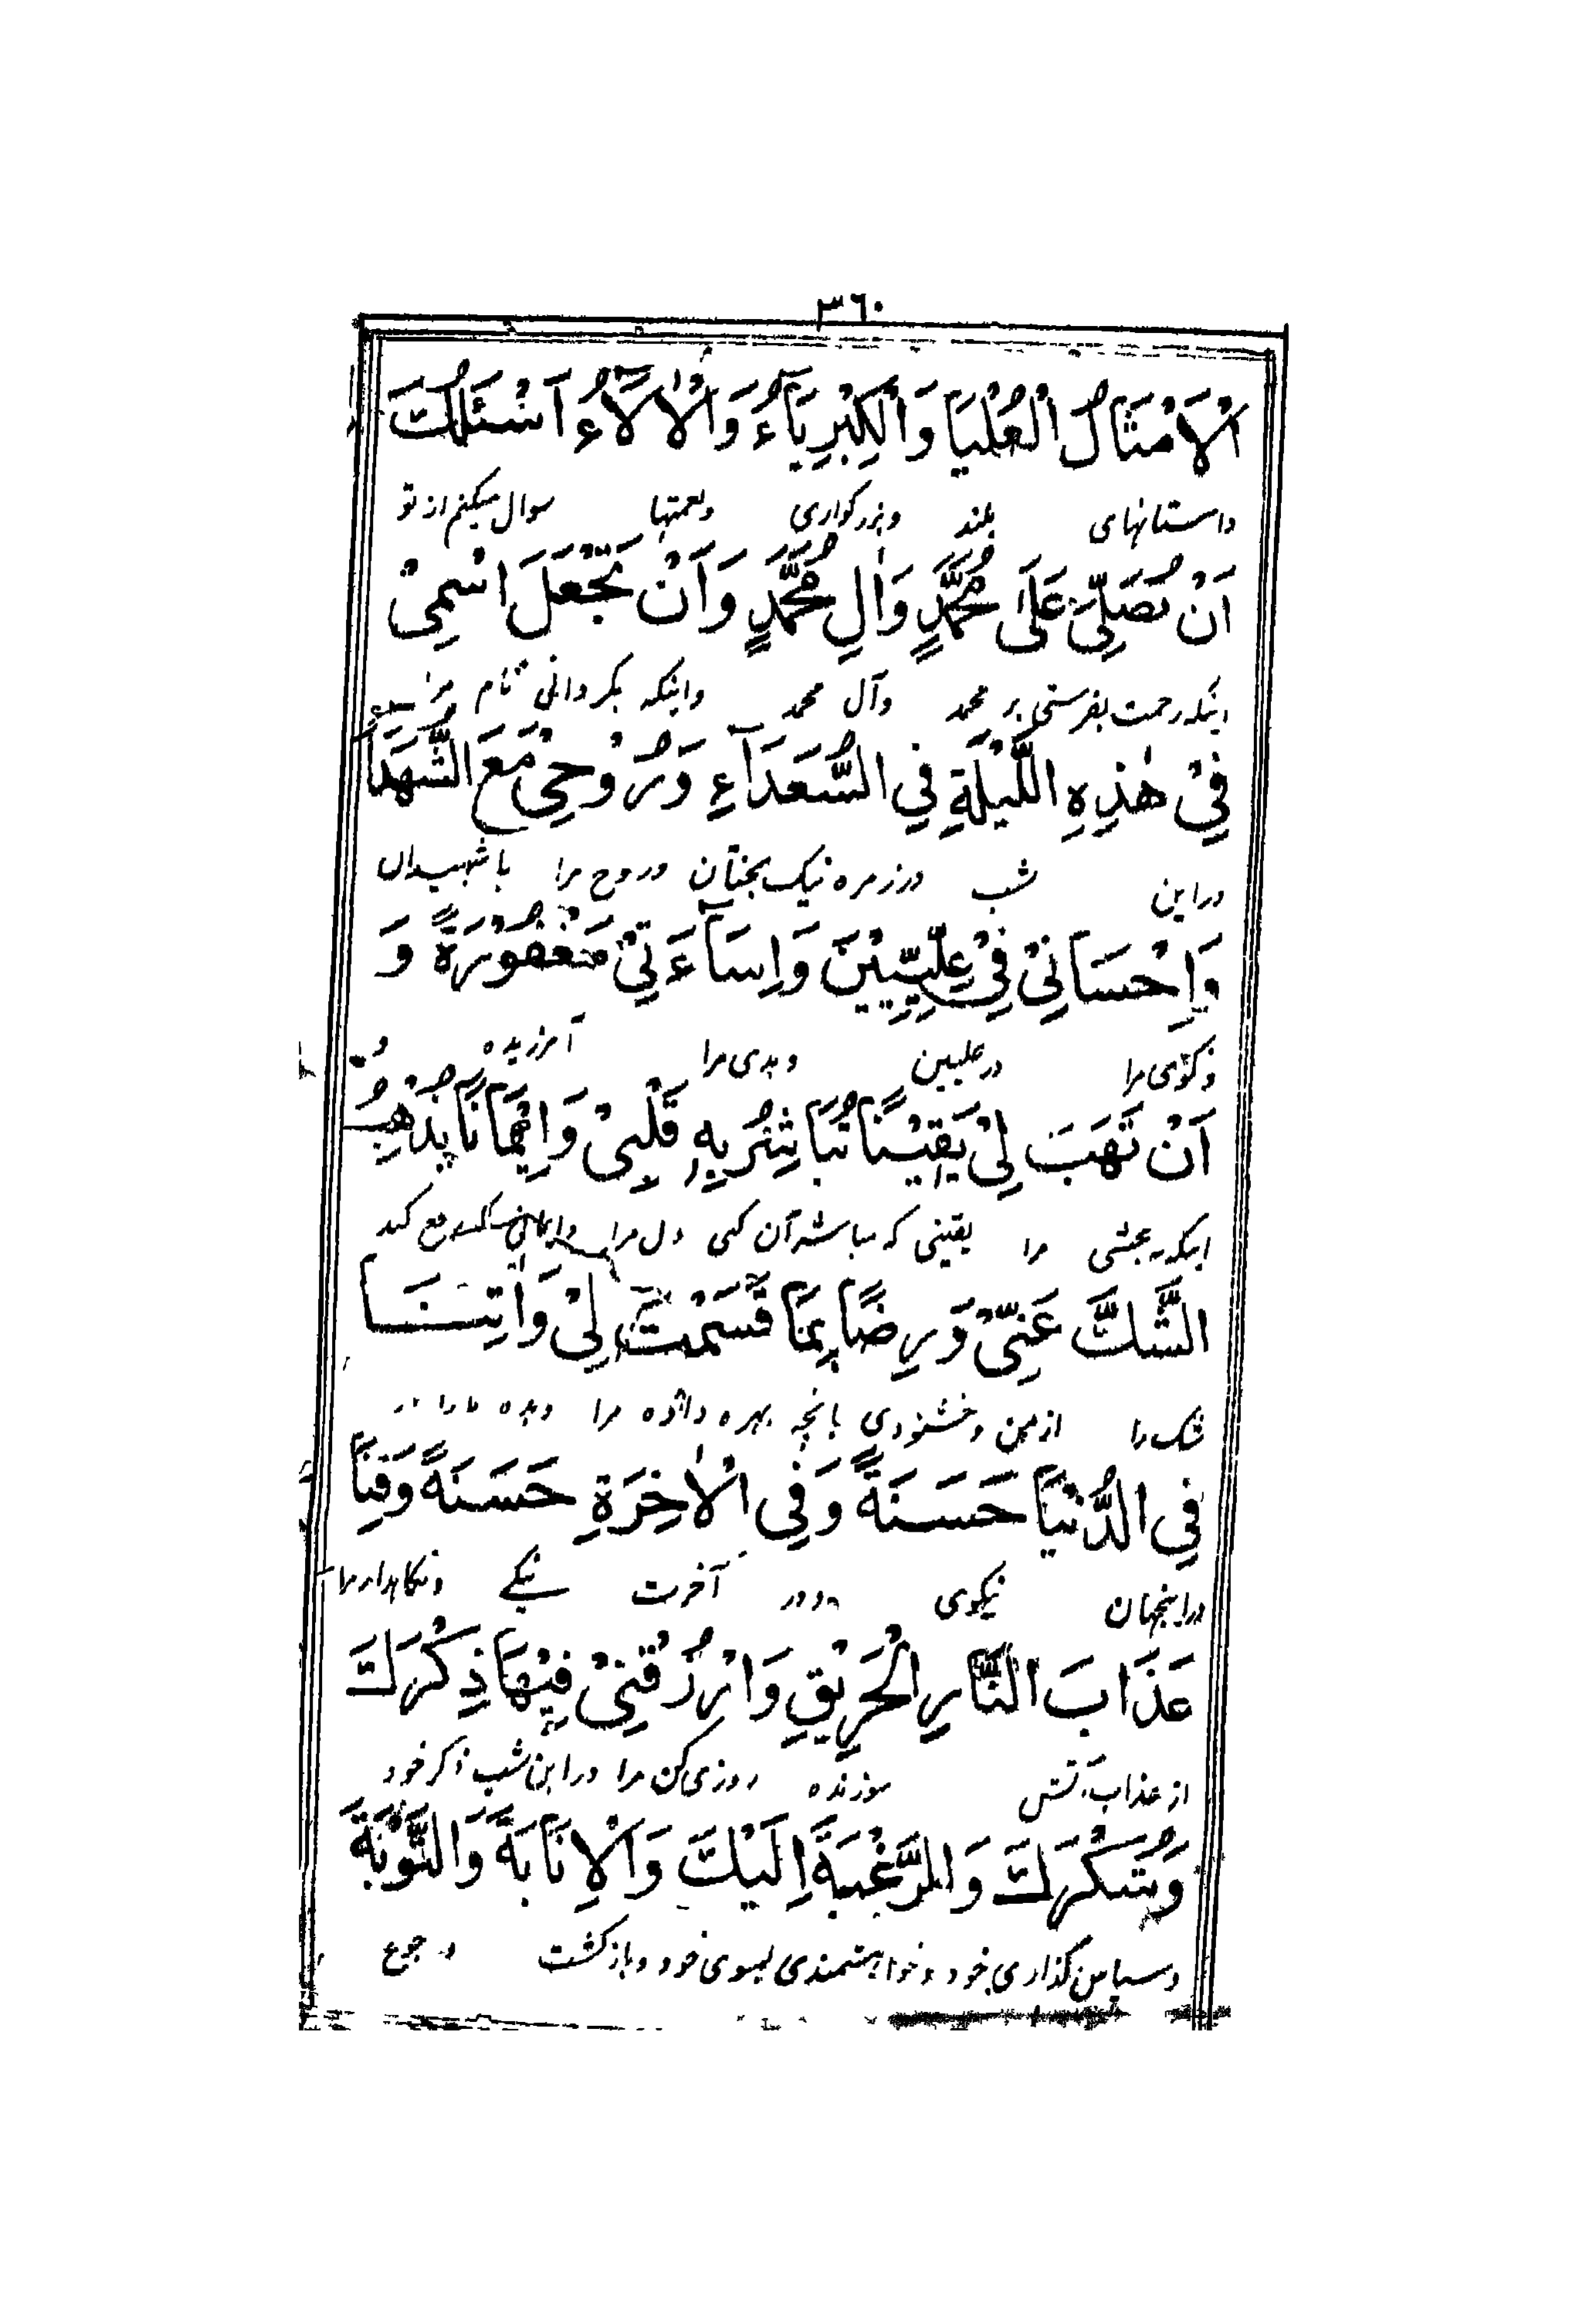 ٣٦٠
اَلْاَمْثَالُ الْعُلْيَا وَالْكِبْرِيَآءُ وَالْاٰلَآءُ اَسْئَلُكَ
داستانهای بلند وبزرگواری ونعمتها سوال میکنم از تو
اَنْ تُصَلِّىَ عَلٰى مُحَمَّدٍ وَاٰلِ مُحَمَّدٍ وَاَنْ تَجْعَلَ اسْمِىْ
اینکه رحمت بفرستی بر محمد وآل محمد واینکه بگردانی نام مرا
فِىْ هٰذِهِ اللَّيْلَةِ فِى السُّعَدَآءِ وَرُوْحِىْ مَعَ الشُّهَدَآءِ
دراین شب درزمره نیک بختان وروح مرا باشهیدان
وَاِحْسَانِىْ فِىْ عِلِّيِّيْنَ وَاِسَآءَتِىْ مَغْفُوْرَةً وَ
ونکوئی مرا درعلیین وبدی مرا آمرزیده و
اَنْ تَهَبَ لِىْ يَقِيْنًا تُبَاشِرُ بِهٖ قَلْبِىْ وَاِيْمَانًا يُذْهِبُ
اینکه بخشی مرا یقینی که مباشر آن کنی دل مرا وایمانی کند
الشَّكَّ عَنِّىْ وَرِضًا بِمَا قَسَمْتَ لِىْ وَاٰتِنَا
شک را ازمن وخشنودی بانچه بهره داده مرا وبده مارا
فِى الدُّنْيَا حَسَنَةً وَفِى الْاٰخِرَةِ حَسَنَةً وَقِنَا
دراینجهان نیکوی ودر آخرت نیکے ونگاهدار مرا
عَذَابَ النَّارِ الْحَرِيْقِ وَارْزُقْنِىْ فِيْهَا ذِكْرَكَ
از عذاب آتش سوزنده روزی کن مرا دراین شب ذکر خود
وَشُكْرَكَ وَالرَّغْبَةَ اِلَيْكَ وَالْاِنَابَةَ وَالتَّوْبَةَ
وسپاس گذاری خود وخواهشمندی بسوی خود وبازگشت ورجوع